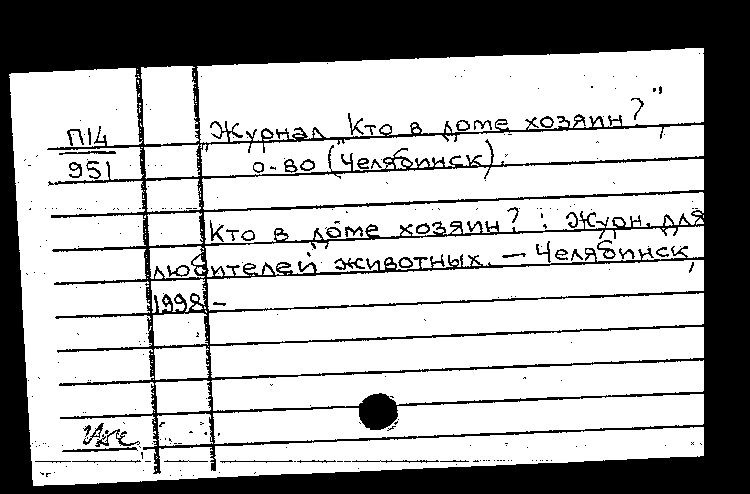 П14
951
"Журнал "Кто в доме хозяин?",
о-во (Челябинск).
Кто в доме хозяин? : Журн. для
любителей животных. — Челябинск,
1998 –